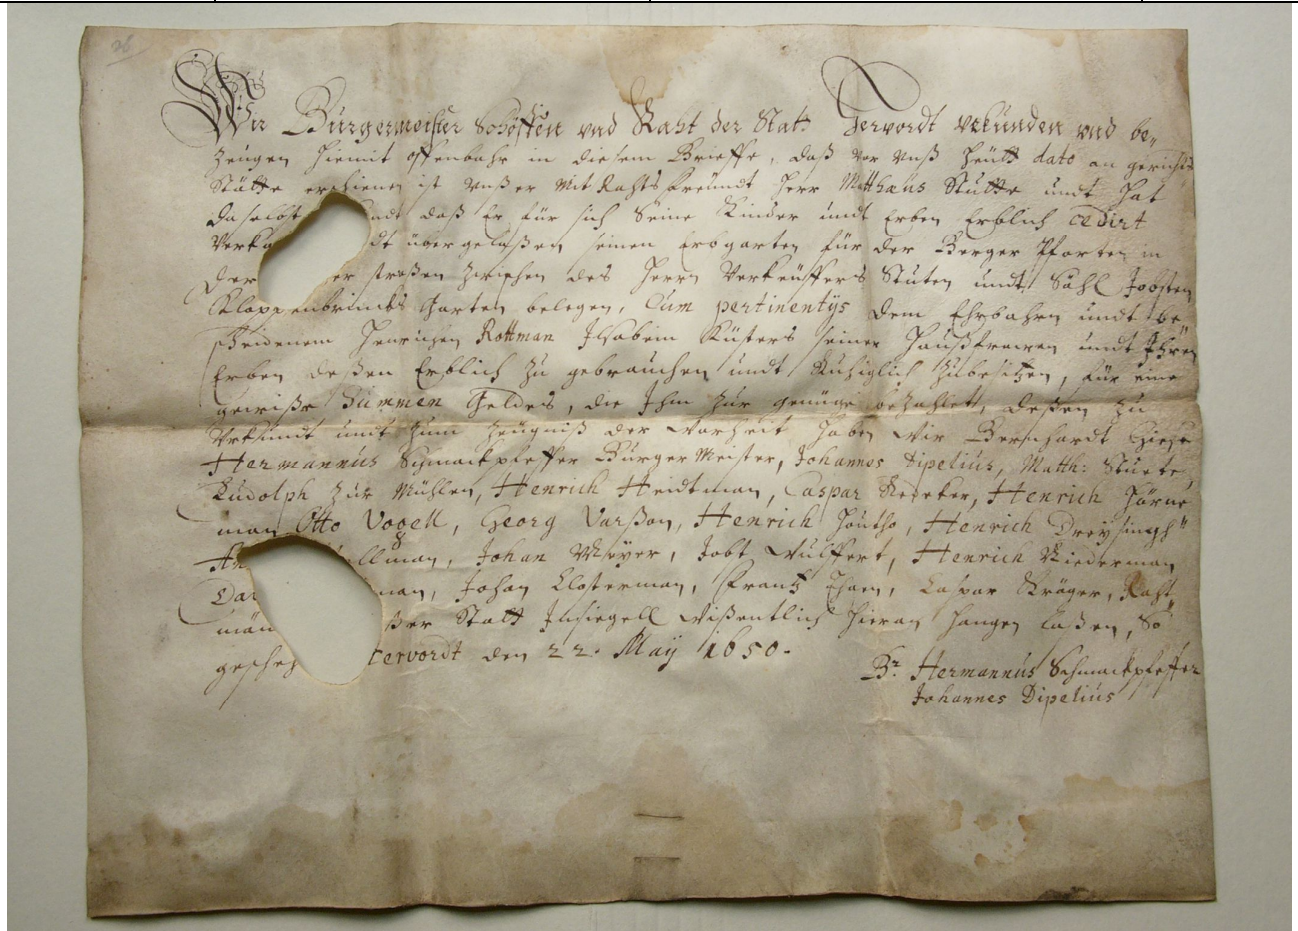 Wir Bürgermeister Schöffen und Raht der Statt Hervordt uhrkunden und be„
Zeugen hiemit offenbahr in diesem Brieffe, daß vor unß heütt dato an gerichts
Stätte erschienen ist unßer Mit Rahts freundt Herr Matthäus Stutte undt hat
daselbst daß Er für sich Seine Kinder undt Erben Erblich cedirt
Verka dt übergelaßen seinen Erbgarten für der Berger Pforten in
der er straßen zwischen des Herrn Verkeüffers Stuten undt Sähl Josten
Klappenbrincks Garten belegen, Cum pertinentÿs dem Ehrbahren undt be
scheidenem Henrichen Rottman Ilsabein Küsters seiner Haußfrawen undt Ihren
Erben deßen Erblich zu gebrauchen undt Ruhiglich zubesitzen, für eine
gewiße Summen Geldes, die Ihm zur genüge bezahlett, deßen zu
Uhrkundt undt zum Zeugniß der Warheit haben Wir Bernhardt Giese
Hermannus Schmackpfeffer Bürger Meister, Johannes Dipelius, Matth: Stuete
Ludolph zur Mühlen, Henrich Heidtman, Caspar Redeker, Henrich Hörne
man Otto Vogell, Georg Varßon, Henrich , Henrich Dreÿsingh
llman, Johan Meÿer, Jobt Wulffert, Henrich Niederman
man, Johan Closterman, Frantz , Caspar Kröger, Raht
män ßer Statt Insiegell wißentlich hieran hangen laßen, So
gescheh ervordt den 22. Maÿ 1650.
Br Hermannus Schmackpfeffer
Johannes Dipelius